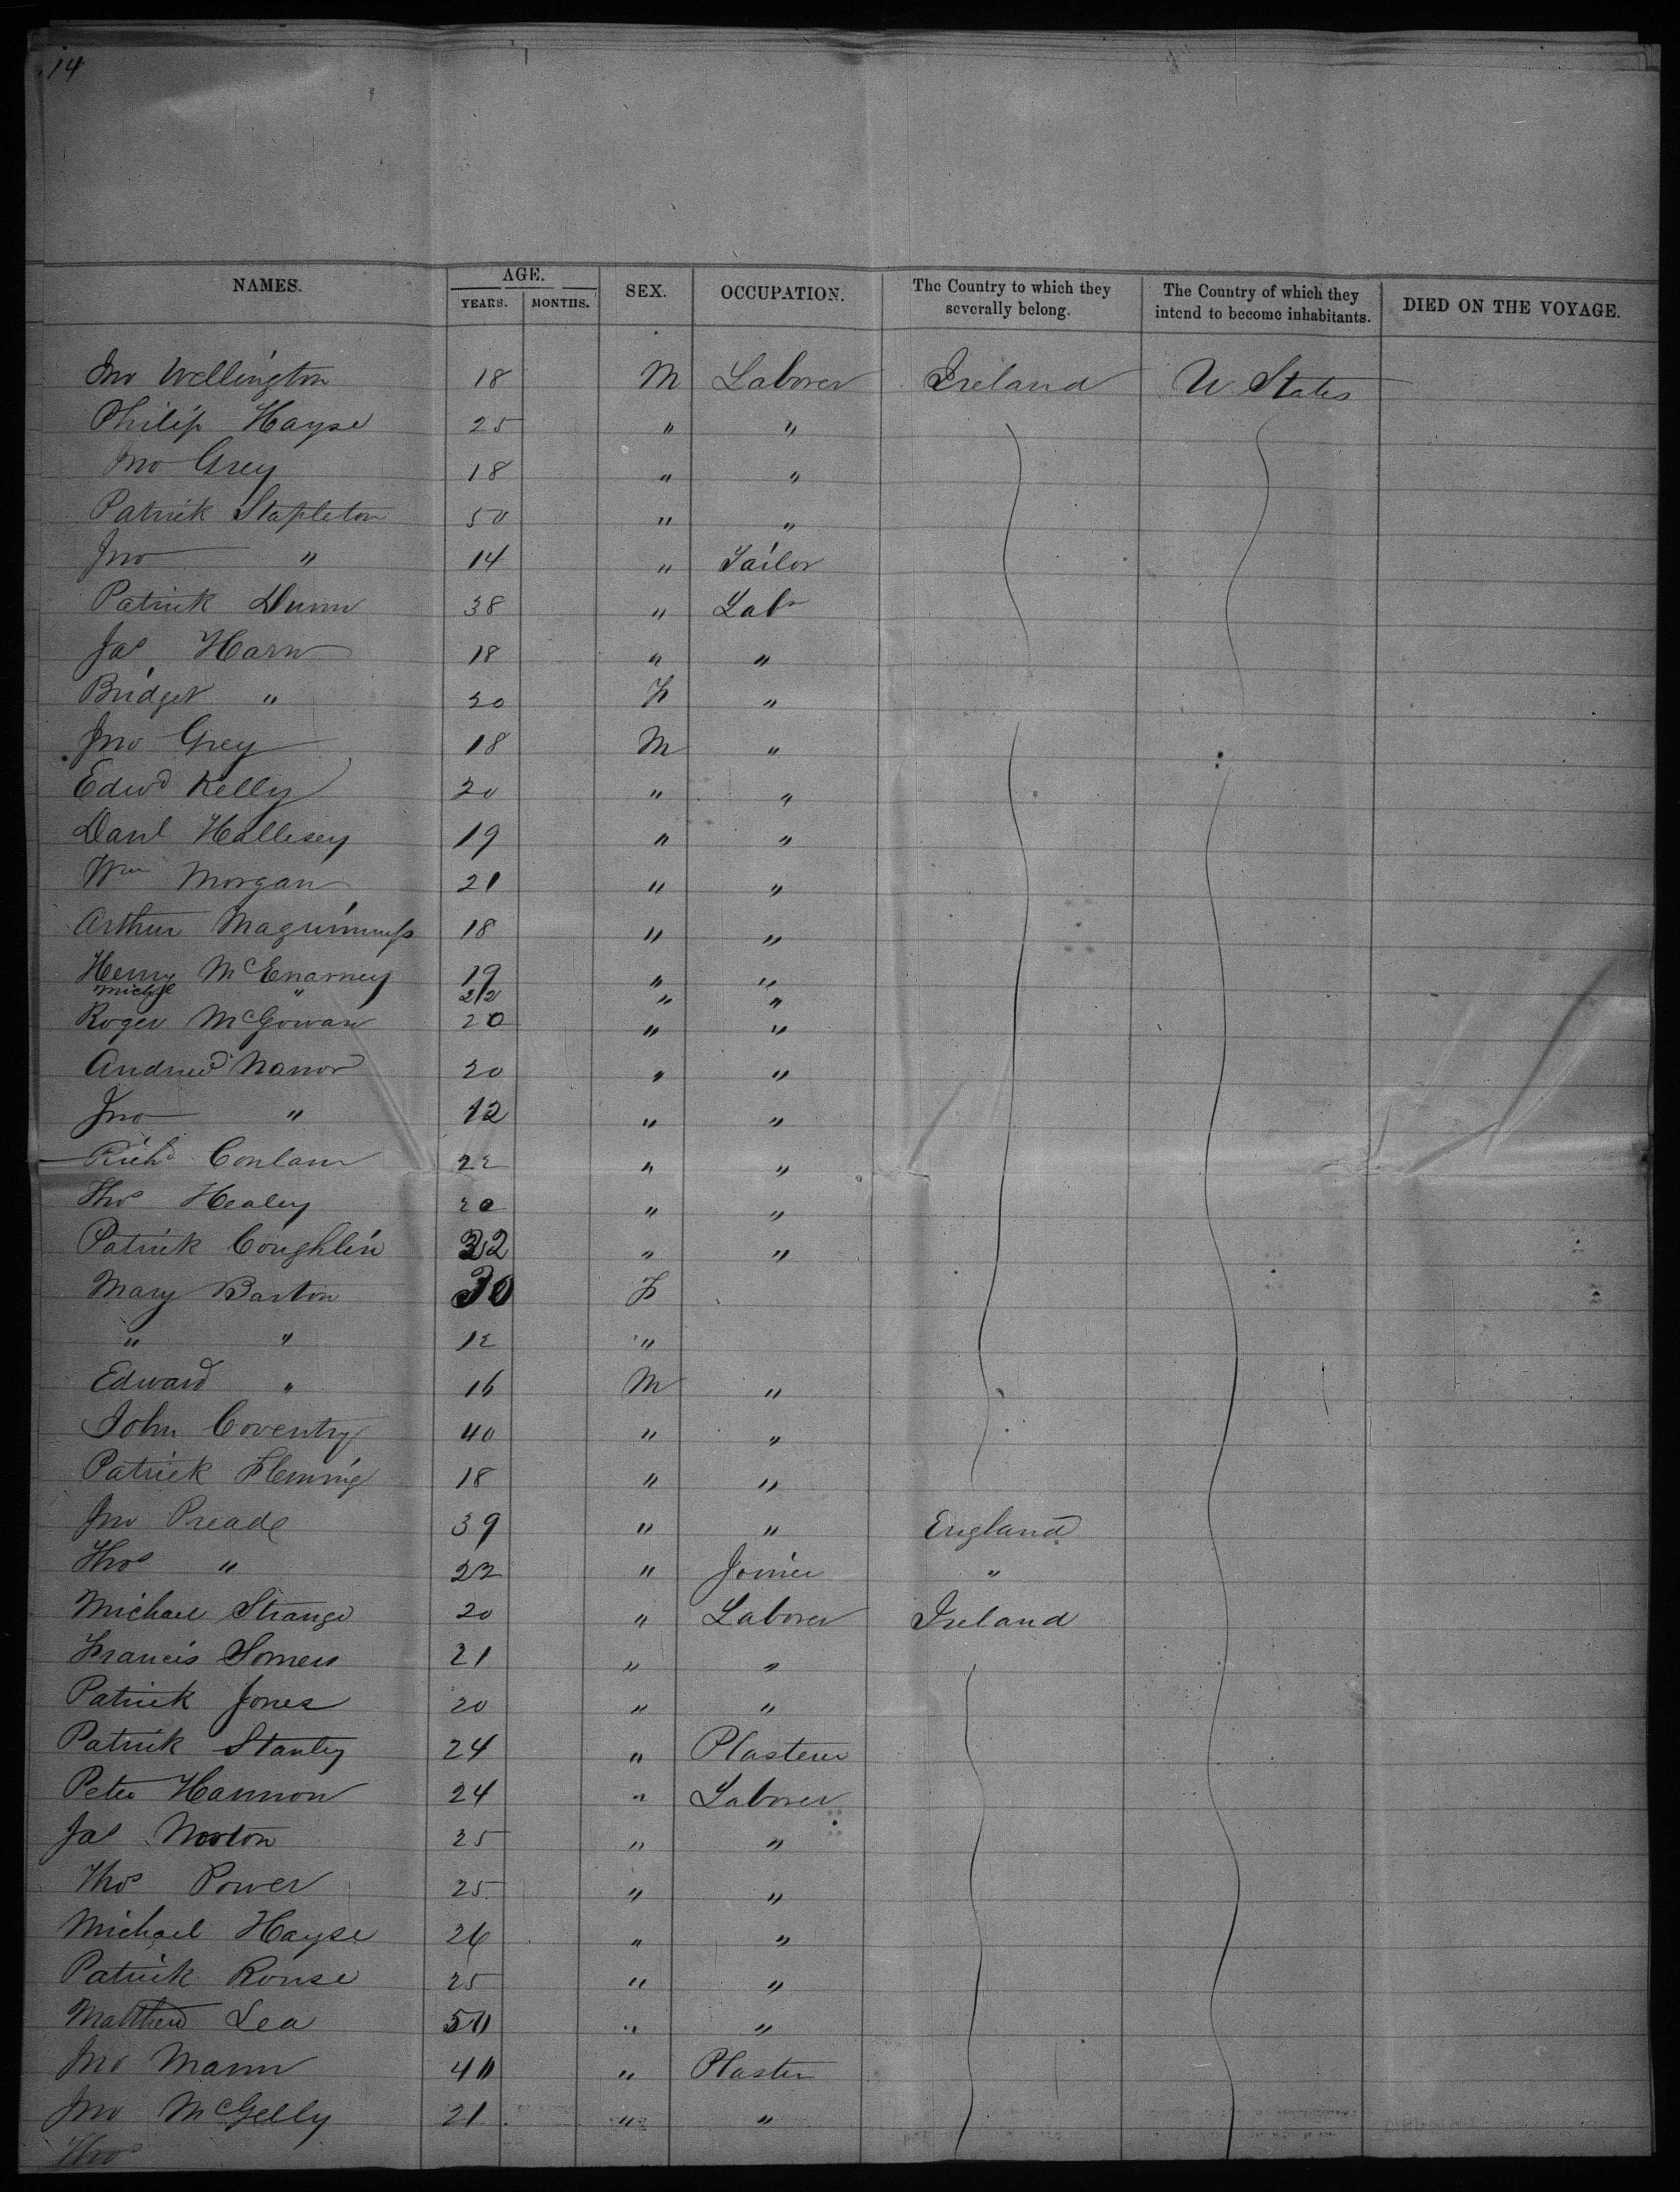 14
NAMES. AGE. SEX. OCCUPATION. The Country to which they severally belong. The Country of which they intend to become inhabitants. DIED ON THE VOYAGE.
YEARS. MONTHS.
Jno Wellington 18 M Laborer Ireland U. States
Philip Hayse 25 " "
Jno Grey 18 " "
Patrick Stapleton 50 " "
Jno " 14 " Tailor
Patrick Dunn 38 " Labr
Jas Harn 18 " "
Bridget " 20 F "
Jno Grey 18 M "
Edwd Kelly 20 " "
Danl Hallesey 19 " "
Wm Morgan 21 " "
Arthur 18 " "
Henry McEnarney 19 " "
Michl " 22 " "
Roger McGowan 20 " "
Andrew Nanor 20 " "
Jno " 12 " "
Richd Conlan 22 " "
Thos Healey 20 " "
Patrick Coughlin 32 " "
Mary Barton 30 F
" " 12 "
Edward " 16 M "
John Coventry 40 " "
Patrick Fleming 18 " "
Jno Preade 39 " " England
Thos " 22 " Joiner "
Michael Strange 20 " Laborer Ireland
Francis Somers 21 " "
Patrick Jones 20 " "
Patrick Stanley 24 " Plasterer
Peter Hannon 24 " Laborer
Jas Norton 25 " "
Thos Power 25 " "
Michael Hayse 26 " "
Patrick Rouse 25 " "
Matthew Lea 50 " "
Jno Mann 40 " Plaster
Jno McGelly 21 " "
Thos